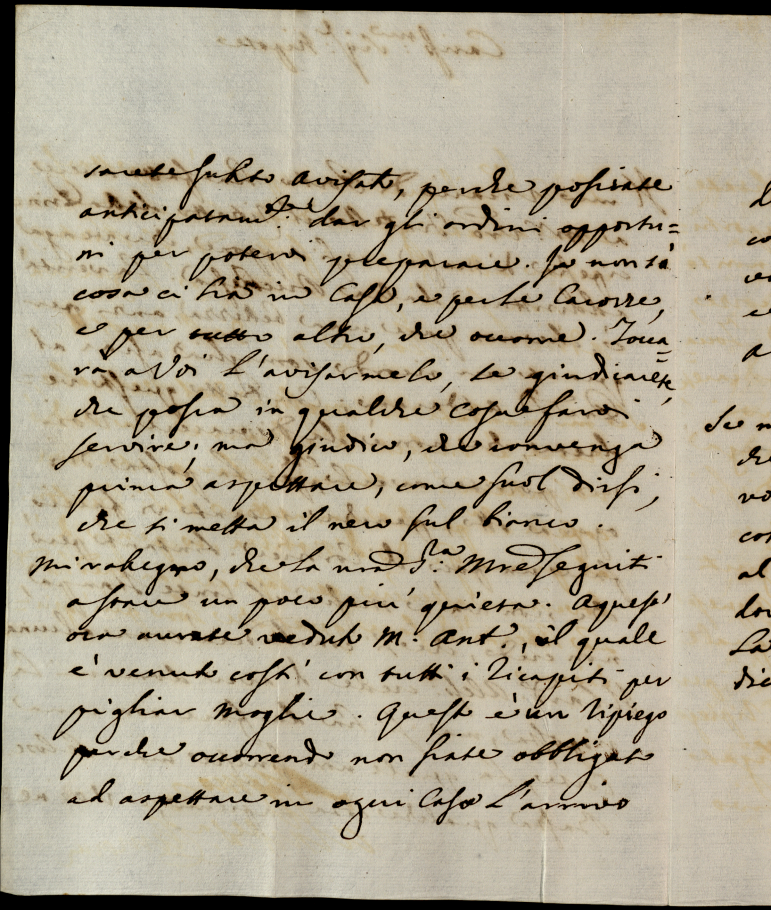 sarete subito avisato, perche possiate
anticipatam.te dar gli ordini opportu=
ni per potervi preparare. Io non sò
cosa ci sia in Casa, e per le Carozze,
e per tutto altro, che occorre. Tocca=
rà a Voi l'avisarmelo, se giudicarete,
che possa in qualche cosa farvi
servire; ma giudico, che convenga
prima aspettare, come suol dirsi,
che si metta il nero sul bianco.
Mi rallegro, che la nra S.ra Mre seguiti
a stare un poco più quieta. A quest'
ora avrete veduto M. Ant., il quale
è venuto costì con tutti i ricapiti per
pigliar moglie. Questo è un ripiego
perche occorrendo non siate obbligato
ad aspettare in ogni Caso l'arrivo